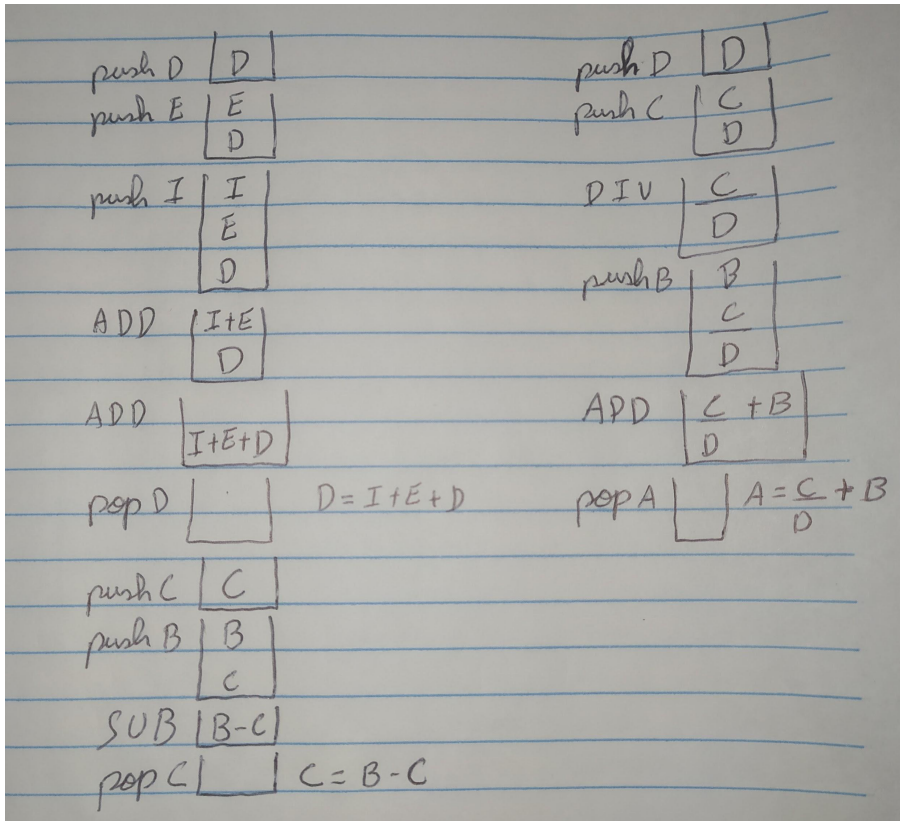 push D D
push E E
D
push I I
E
D
ADD I+E
D
ADD
I+E+D
pop D D = I+E+D
push C C
push B B
C
SUB B-C
pop C C = B-C
push D D
push C C
D
DIV C
D
push B B
C
D
ADD C + B
D
pop A A = C + B
D